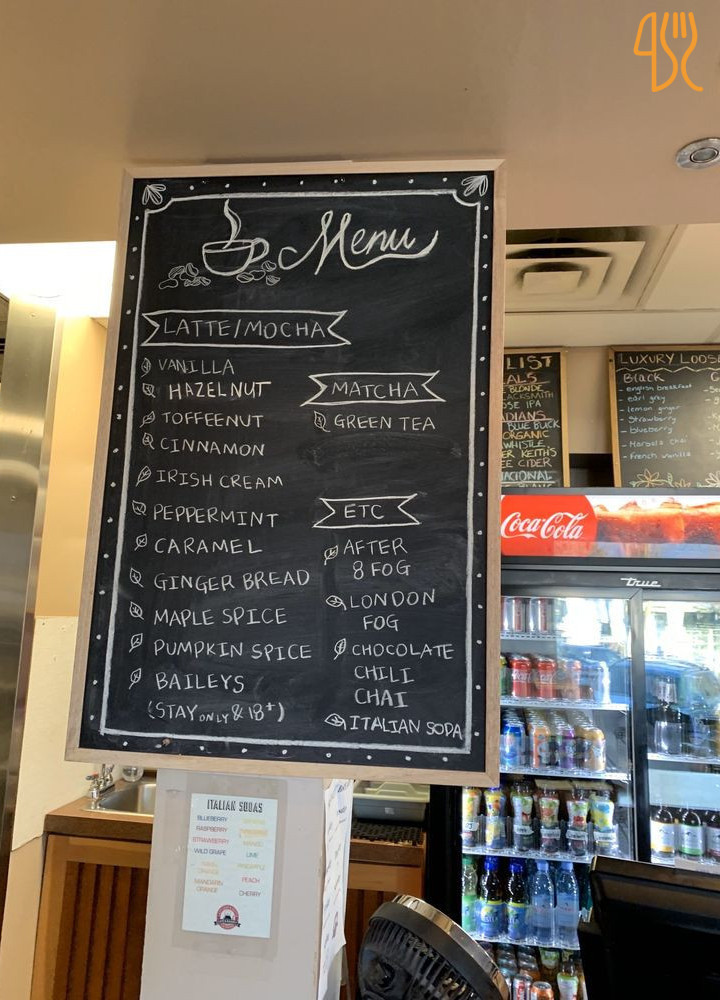 Menu
LATTE/MOCHA
VANILLA
HAZELNUT
TOFFEENUT
CINNAMON
IRISH CREAM
PEPPERMINT
CARAMEL
GINGER BREAD
MAPLE SPICE
PUMPKIN SPICE
BAILEYS
(STAY ONLY & 18+)
MATCHA
GREEN TEA
ETC
AFTER
8 FOG
LONDON
FOG
CHOCOLATE
CHILI
CHAI
ITALIAN SODA
LIST
BLONDE
IPA
BLUE BUCK
ORGANIC
WHISTLE
KEITH'S
CIDER
LUXURY LOOS
Black
english breakfast
earl gray
lemon ginger
Strawberry
blueberry
Masala Chai
French vanilla
Coca-Cola
true
ITALIAN SODAS
BLUEBERRY
RASPBERRY
STRAWBERRY
WILD GRAPE
MANDARIN
ORANGE
MANGO
LIME
PINEAPPLE
PEACH
CHERRY